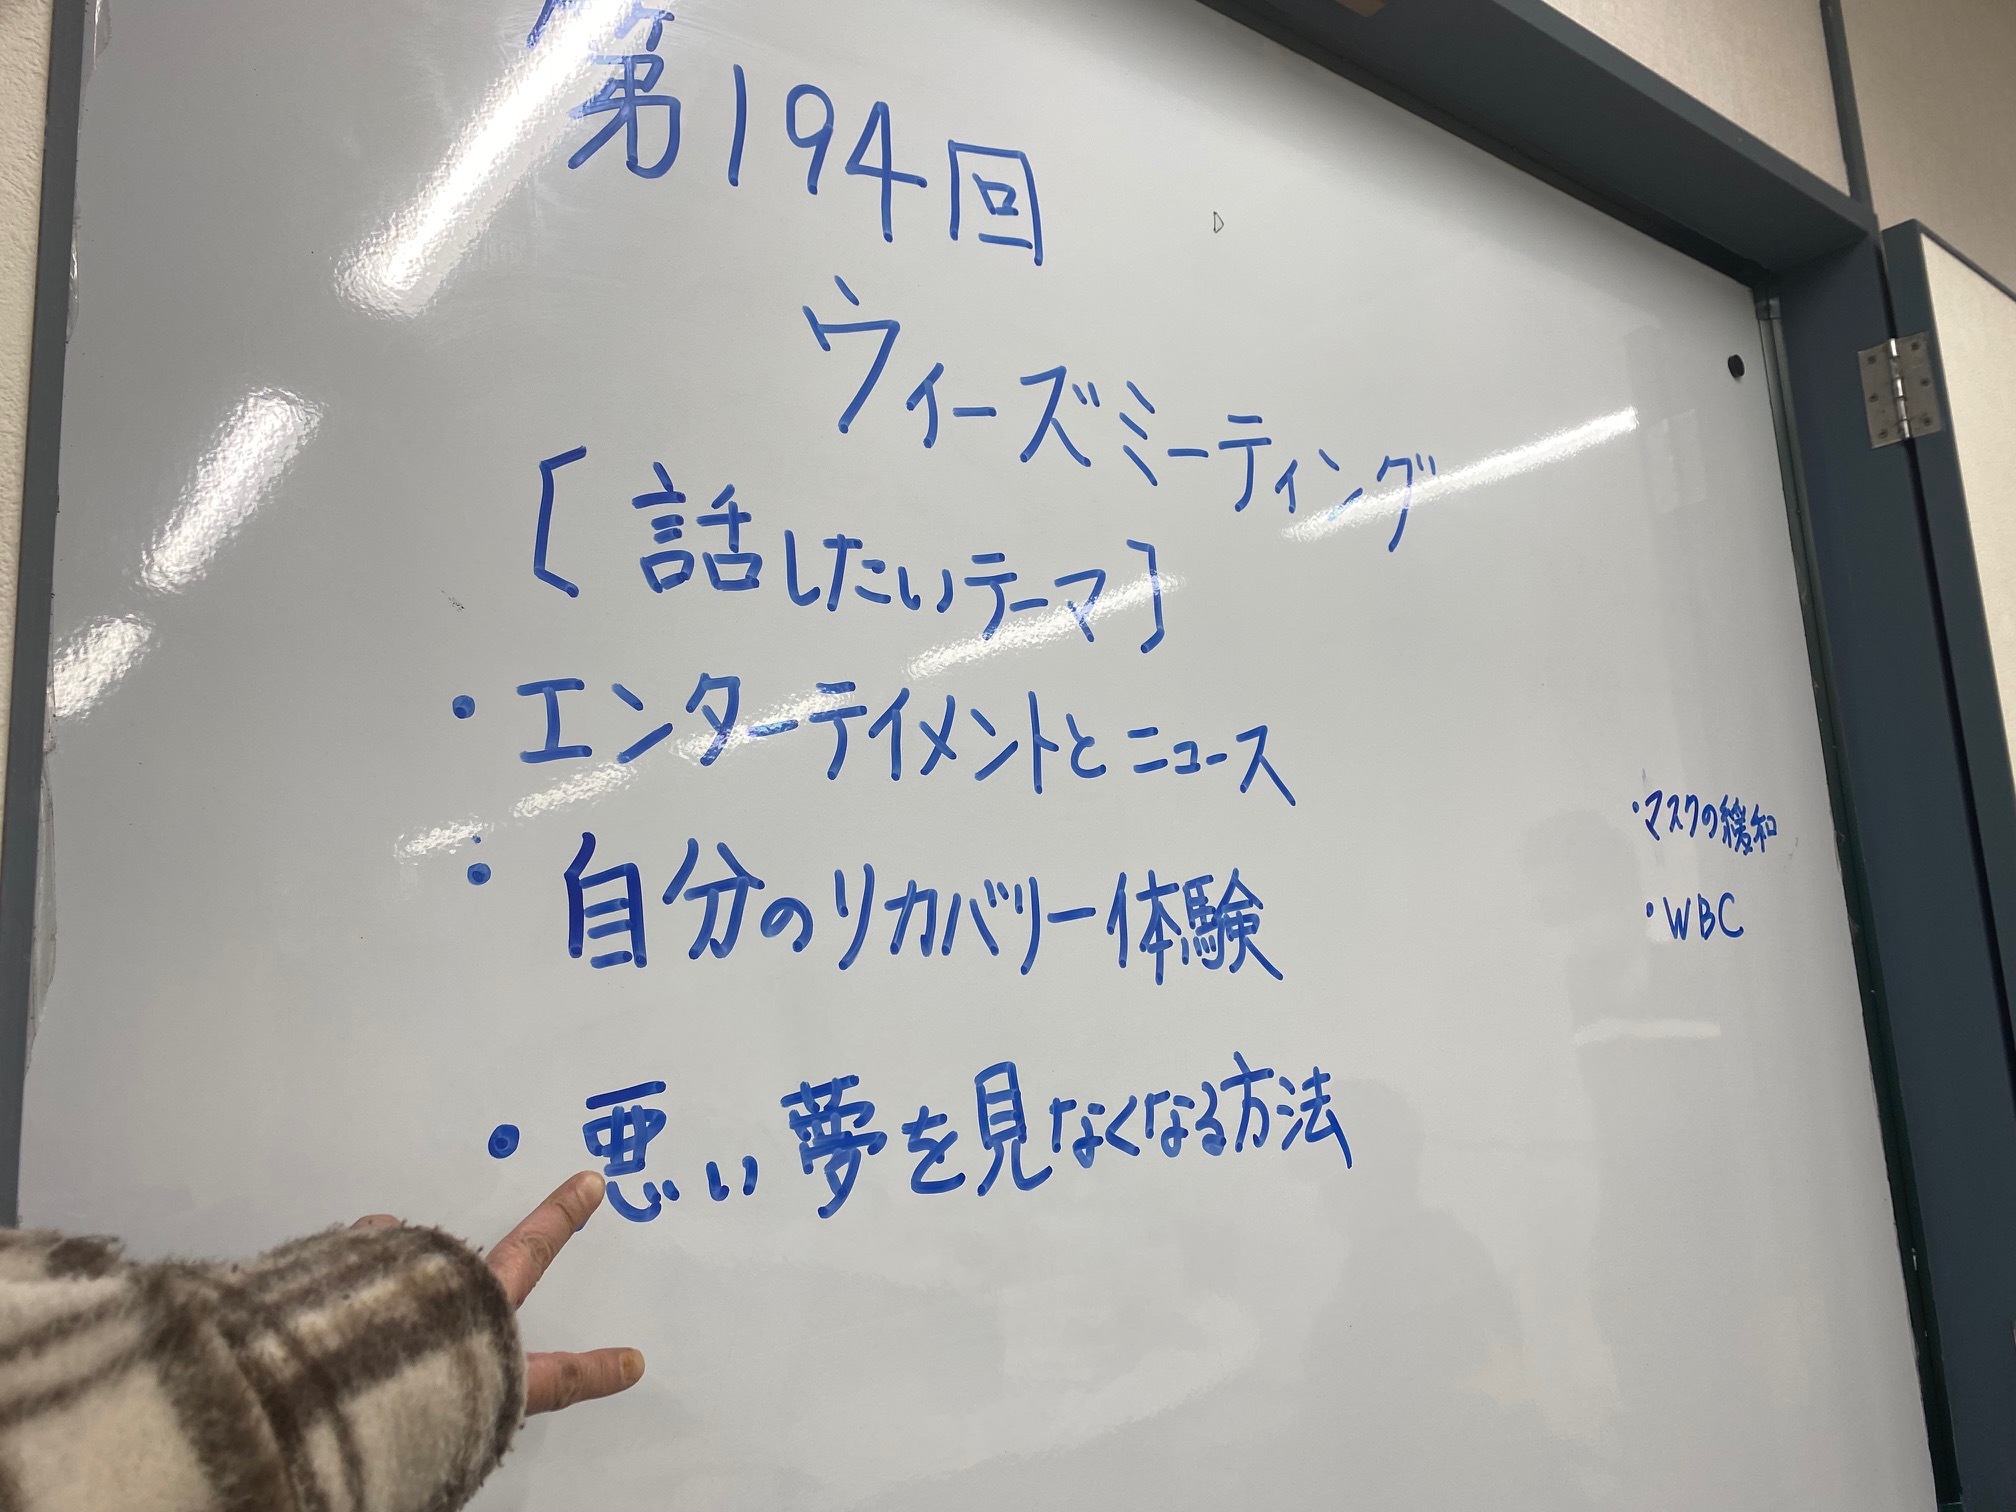 第194回
ウィーズミーティング
[話したいテーマ]
・エンターテイメントとニュース
・自分のリカバリー体験
・悪い夢を見なくなる方法
・マスクの緩和
・WBC